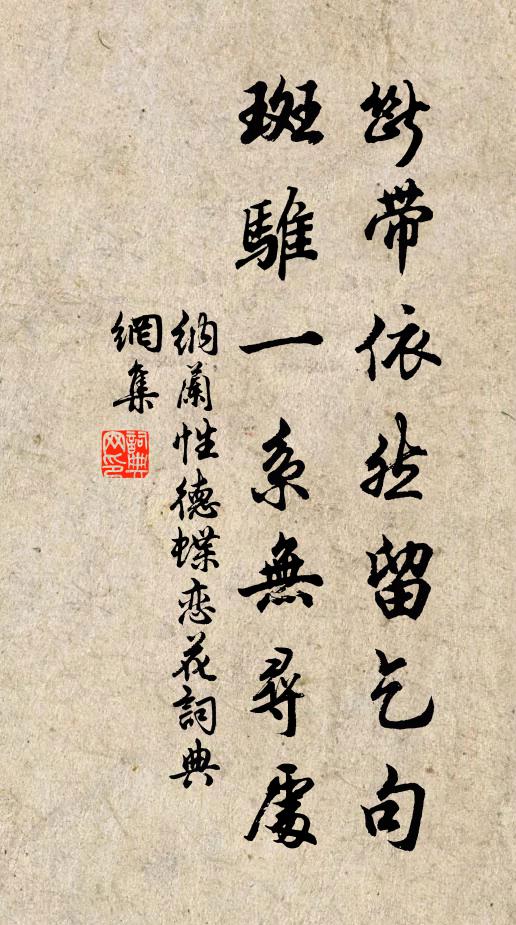 斷帶依然留乞句
斑騅一系無尋處
納蘭性德蝶恋花詞典
網集
詞典
网印